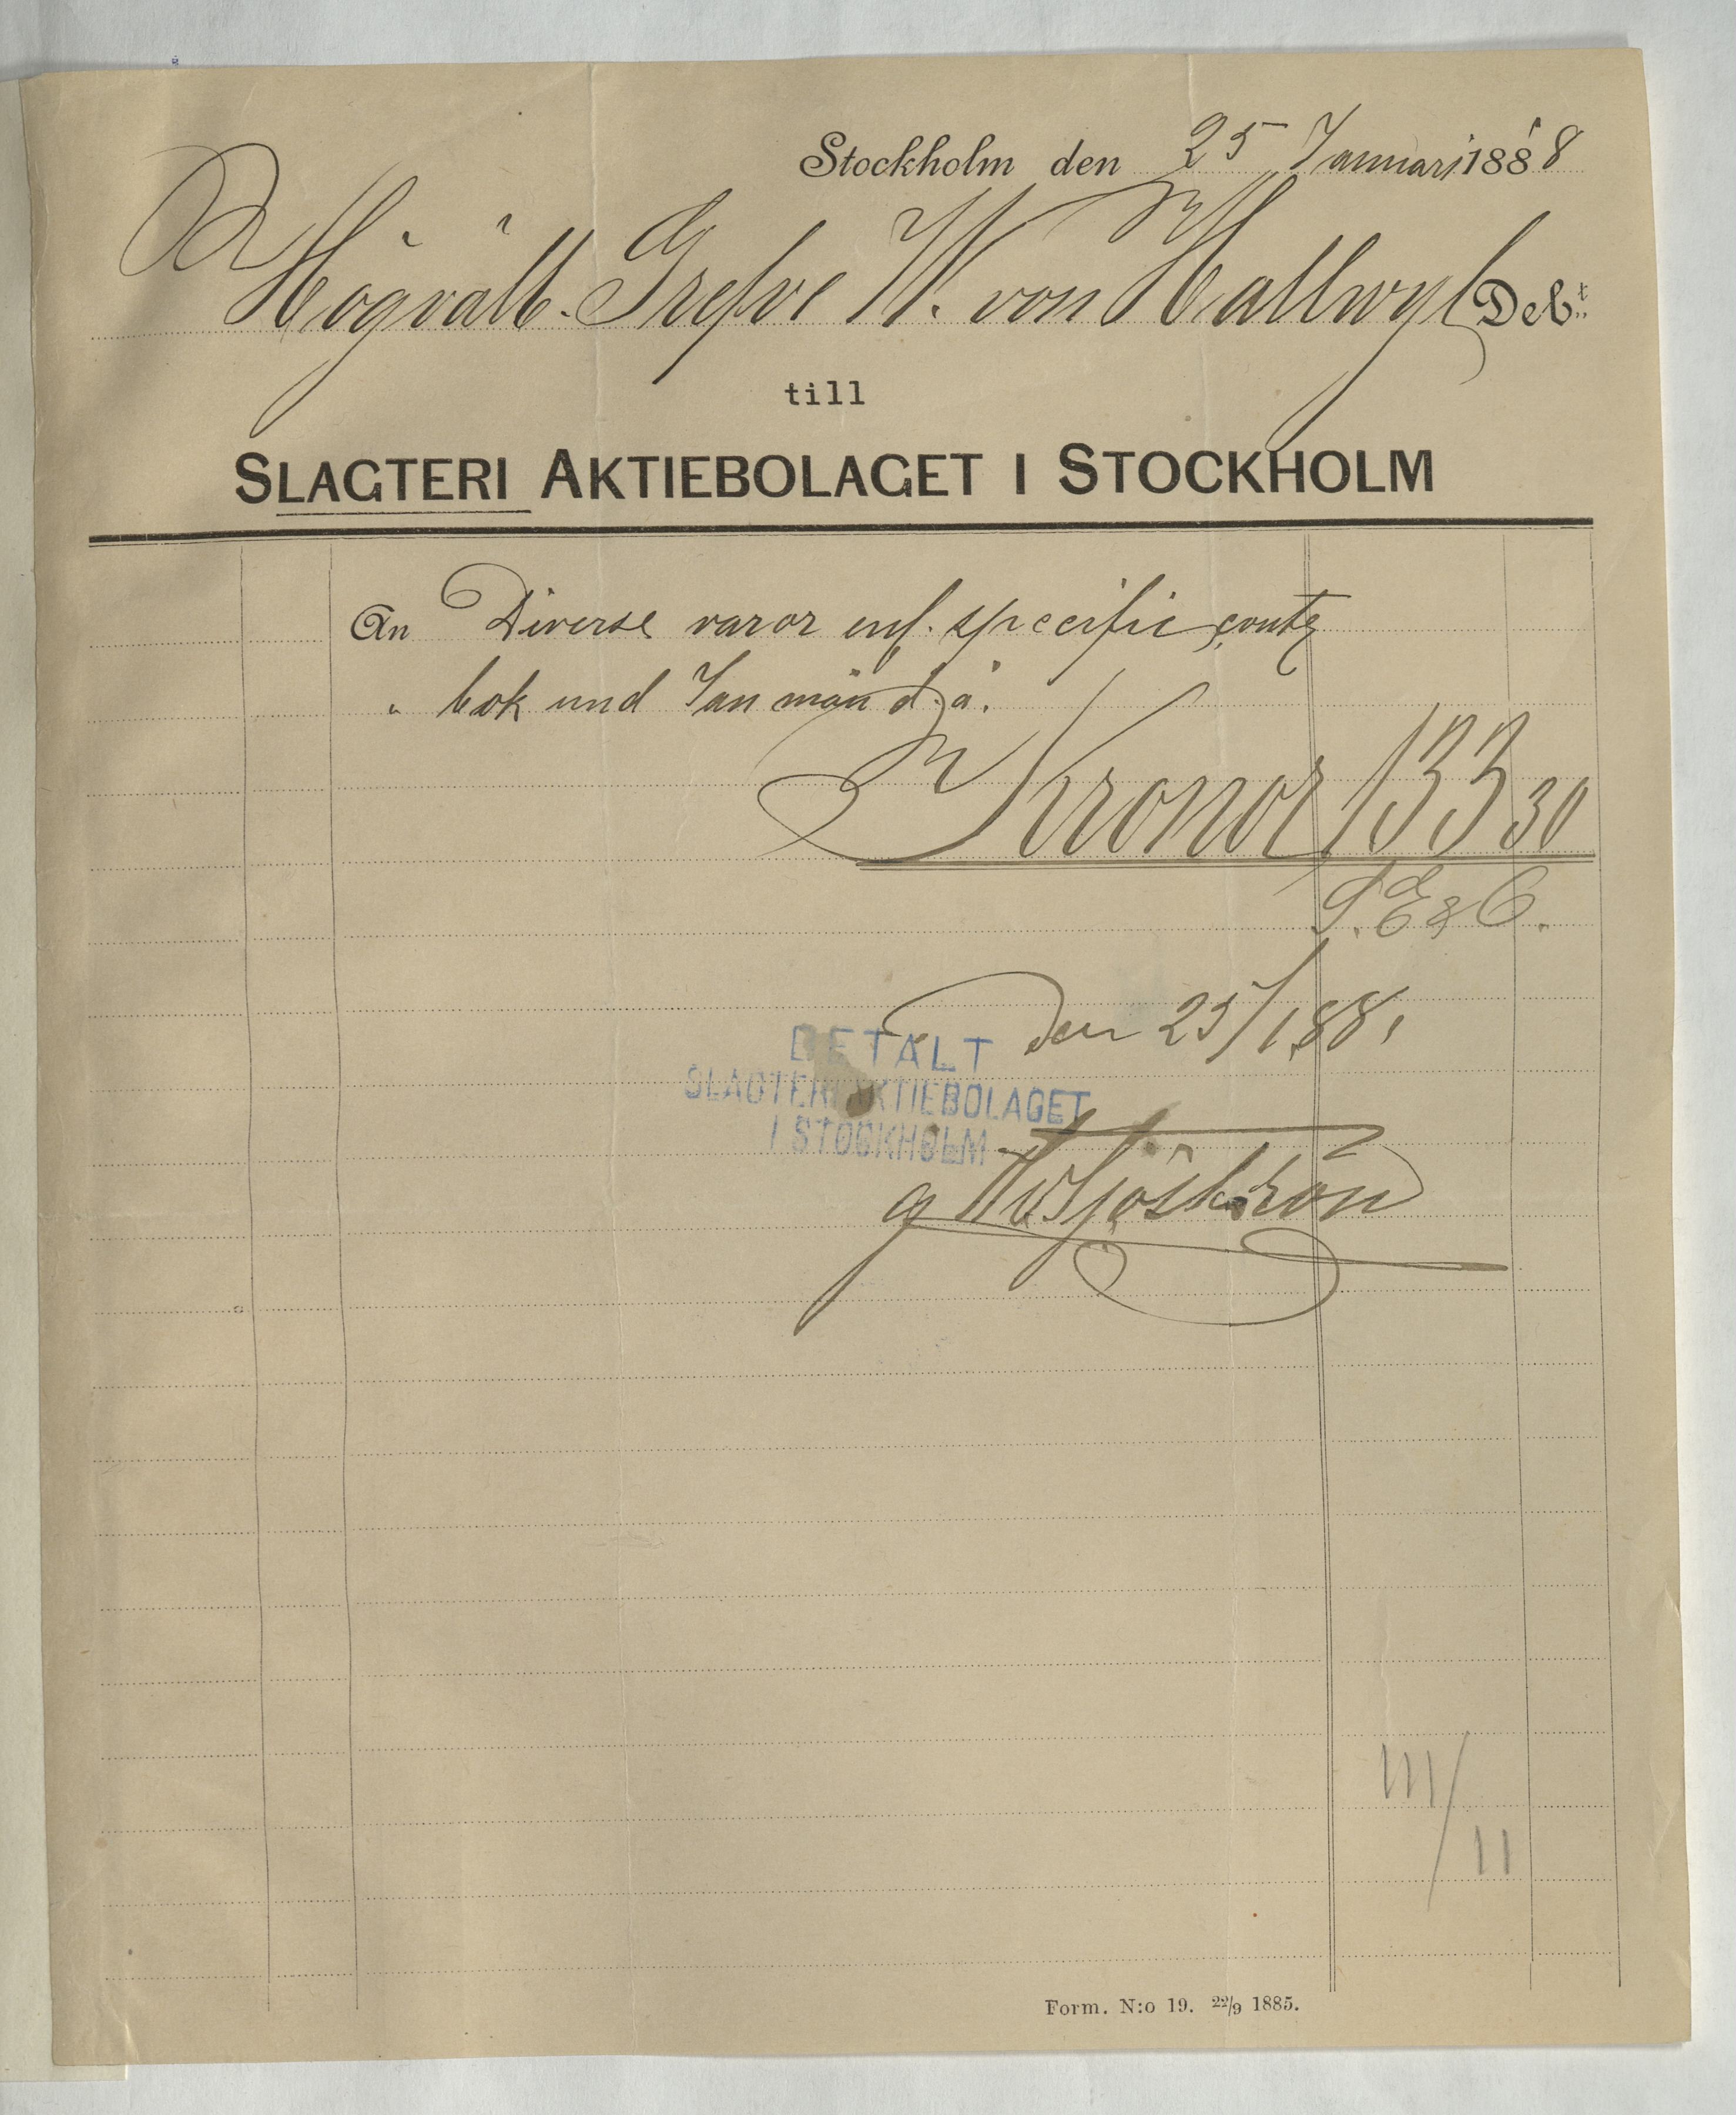 Stockholm den 25 Januari 1888
Högvälb. Grefve W. von Hallwyl Deb:t
till
SLAGTERI AKTIEBOLAGET I STOCKHOLM
An Diverse varor enl. specific contra
" bok und Jan mån d. å.
Kronor 133 30
S. E & O.
den 25/1 88.
BETALT
SLAGTERI AKTIEBOLAGET
I STOCKHOLM
III/II
Form. N:o 19. 22/9 1885.